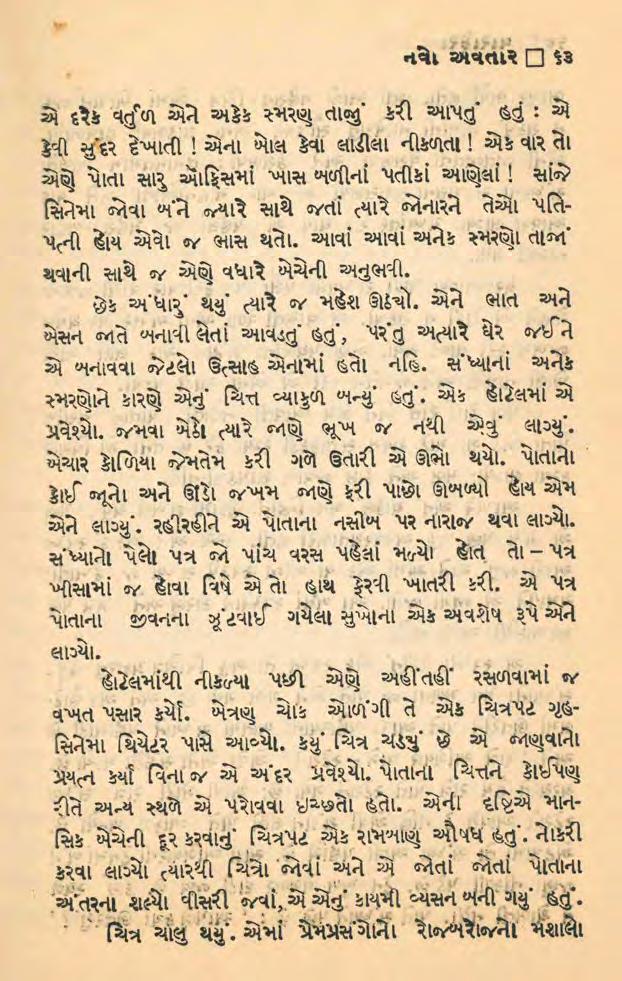 નવો અવતાર □ ૬૩
એ દરેક વર્તુળ એને અકેક સ્મરણ તાજું કરી આપતું હતું : એ
કેવી સુંદર દેખાતી ! એના બોલ કેવા લાડીલા નીકળતા ! એક વાર તો
એણે પોતા સારુ ઑફિસમાં ખાસ બળીનાં પતીકાં આણેલાં ! સાંજે
સિનેમા જોવા બંને જ્યારે સાથે જતાં ત્યારે જોનારને તેઓ પતિ-
પત્ની હોય એવો જ ભાસ થતો. આવાં આવાં અનેક સ્મરણો તાજાં
થવાની સાથે જ એણે વધારે બેચેની અનુભવી.
છેક અંધારું થયું ત્યારે જ મહેશ ઊઠચો. એને ભાત અને
બેસન જાતે બનાવી લેતાં આવડતું હતું, પરંતુ અત્યારે ઘેર જઈને
એ બનાવવા જેટલો ઉત્સાહ એનામાં હતો નહિ. સંધ્યાનાં અનેક
સ્મરણોને કારણે એનું ચિત્ત વ્યાકુળ બન્યું હતું. એક હોટેલમાં એ
પ્રવેશ્યો. જમવા બેઠો ત્યારે જાણે ભૂખ જ નથી એવું લાગ્યું.
બેચાર કોળિયા જેમતેમ કરી ગળે ઉતારી એ ઊભો થયો. પોતાનો
કોઈ જૂનો અને ઊંડો જખમ જાણે ફરી પાછો ઊબળ્યો હોય એમ
એને લાગ્યું. રહીરહીને એ પોતાના નસીબ પર નારાજ થવા લાગ્યો.
સંધ્યાનો પેલો પત્ર જો પાંચ વરસ પહેલાં મળ્યો હોત તો – પત્ર
ખીસામાં જ હોવા વિષે એ તો હાથ ફેરવી ખાતરી કરી. એ પત્ર
પોતાના જીવનના ઝૂંટવાઈ ગયેલા સુખોના એક અવશેષ રૂપે એને
લાગ્યો.
હોટેલમાંથી નીકળ્યા પછી એણે અહીંતહીં રસળવામાં જ
વખત પસાર કર્યો. બેત્રણ ચોક ઓળંગી તે એક ચિત્રપટ ગૃહ-
સિનેમા થિયેટર પાસે આવ્યો. કયું ચિત્ર ચડ્યું છે એ જાણવાનો
પ્રયત્ન કર્યા વિના જ એ અંદર પ્રવેશ્યો. પોતાના ચિત્તને કોઈપણ
રીતે અન્ય સ્થળે એ પરોવવા ઇચ્છતો હતો. એની દૃષ્ટિએ માન-
સિક બેચેની દૂર કરવાનું ચિત્રપટ એક રામબાણ ઔષધ હતું. નોકરી
કરવા લાગ્યો ત્યારથી ચિત્રો જોવાં અને એ જોતાં જોતાં પોતાના
અંતરના શલ્યો વીસરી જવાં, એ એનું કાયમી વ્યસન બની ગયું હતું.
ચિત્ર ચાલુ થયું. એમાં પ્રેમપ્રસંગોનો રોજબરોજનો મશાલો